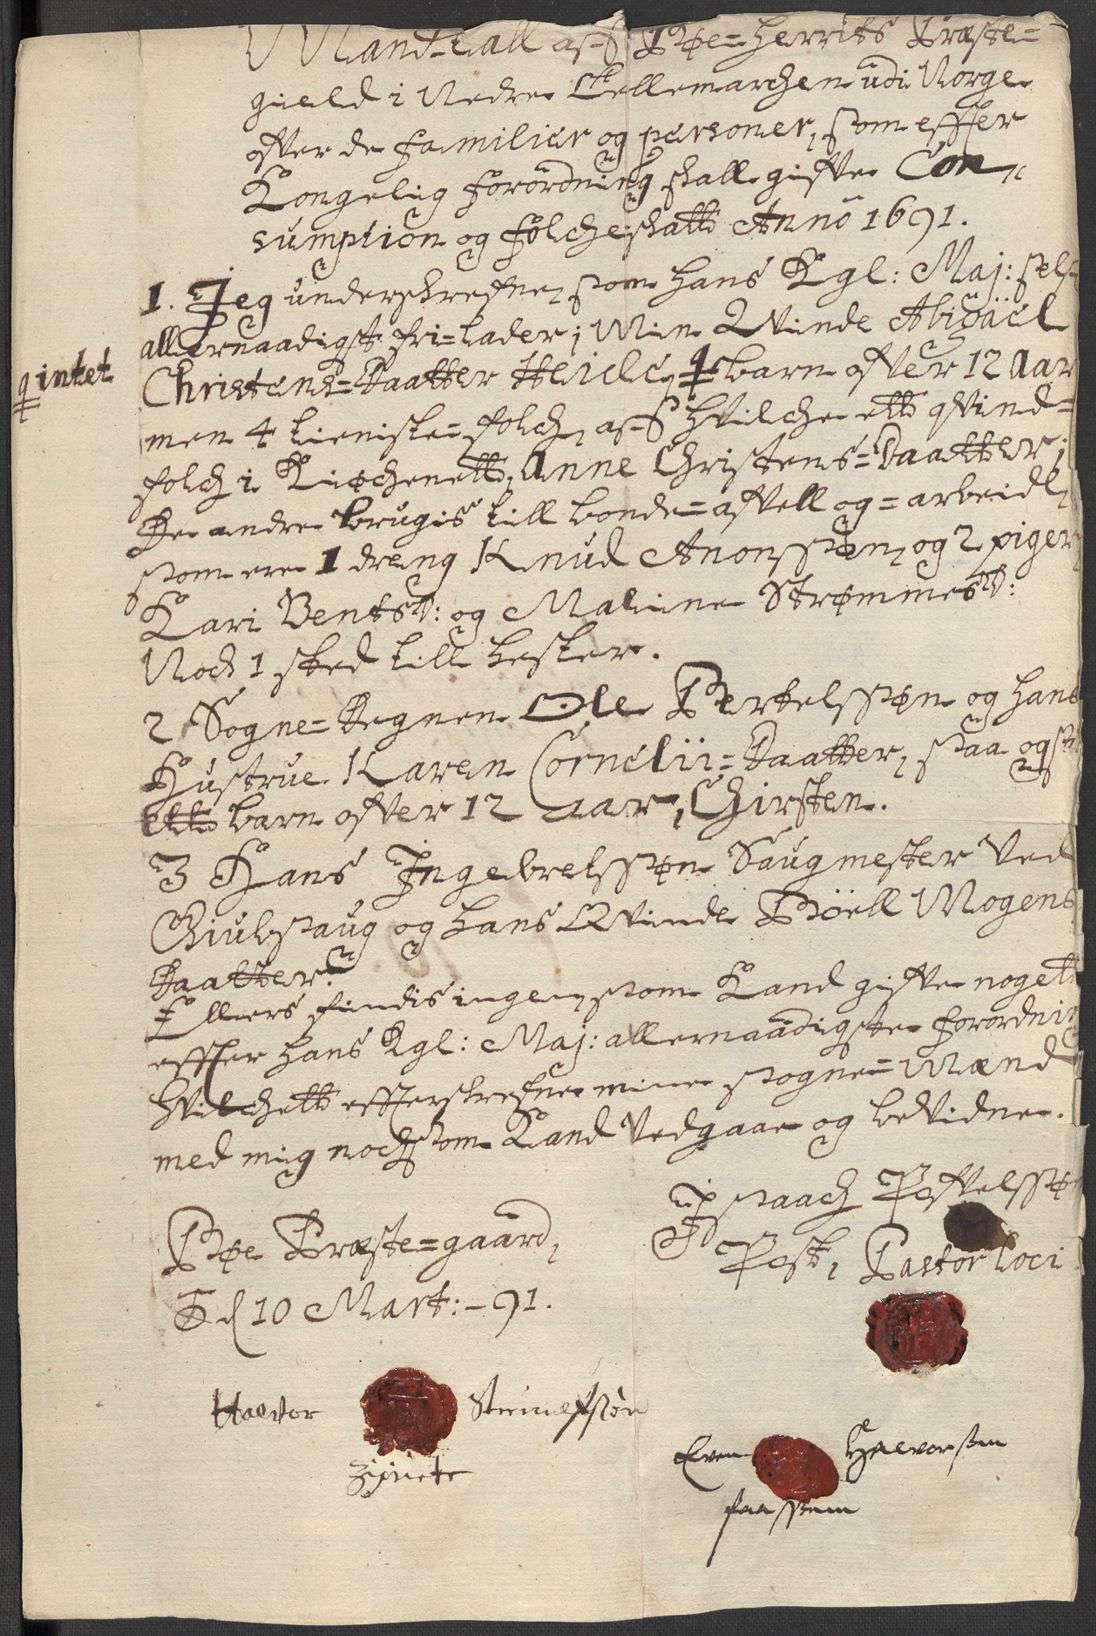 Mandtall aff Bøe-Herrits Præste-
gield i Nedre Tellemarchen udi Norge
offver de familier og personer, som effter
Kongelig forordning skall giffve Con-
sumption og folcheskatt Anno 1691.
1. Jeg underskrefne, som hans Kgl: Maj: self
allernaadigst fri-lader; Min Qvinde Abigäel
Christens-Daatter Heide,
intet
barn offver 12 aar
men 4 tieniste-folch, aff hvilche ett qvind-
folch i Kiøchenett, Anne Christens-Daatter;
De andre brugis till bonde-affvell og-arbeid,
som ere 1 dreng Knud Anonssøn, og 2 piger
Kari Bentsd: og Maline Strømmesd:
Noch 1 sted till hester.
2 Sogne-Degnen Ole Bertelssøn og hans
Hustrue Karen Cornelii-Daatter, saa og
ett barn offver 12 aar, Chirsten.
3 Hans Ingebretssøn Saugmester Ved
og hans Qvinde Böell Mogens
Daatter.
Ellers findis ingen, som Kand giffve noget
effter hans Kgl: Maj: allernaadigste forordning
hvilchett effterskrefne mine sogne-Mænd
med mig nochsom Kand Vedgaae og beVidne.
Bøe Præste-gaard,
D 10 Mart: -91.
Issaach Poffvelssøn
Post, Pastor loci
Halvor
Even Halvorsen